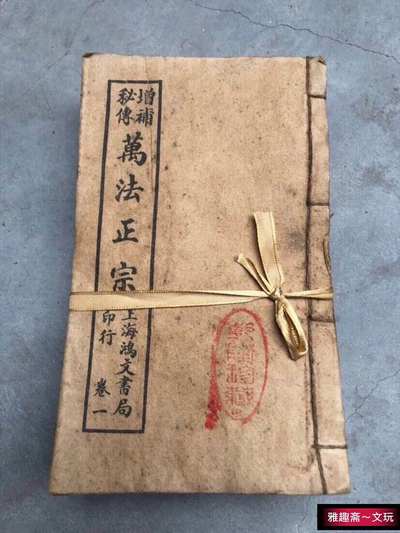 增補
秘傳
萬法正宗
上海鴻文書局
印行
卷一
雅趣斋～文玩